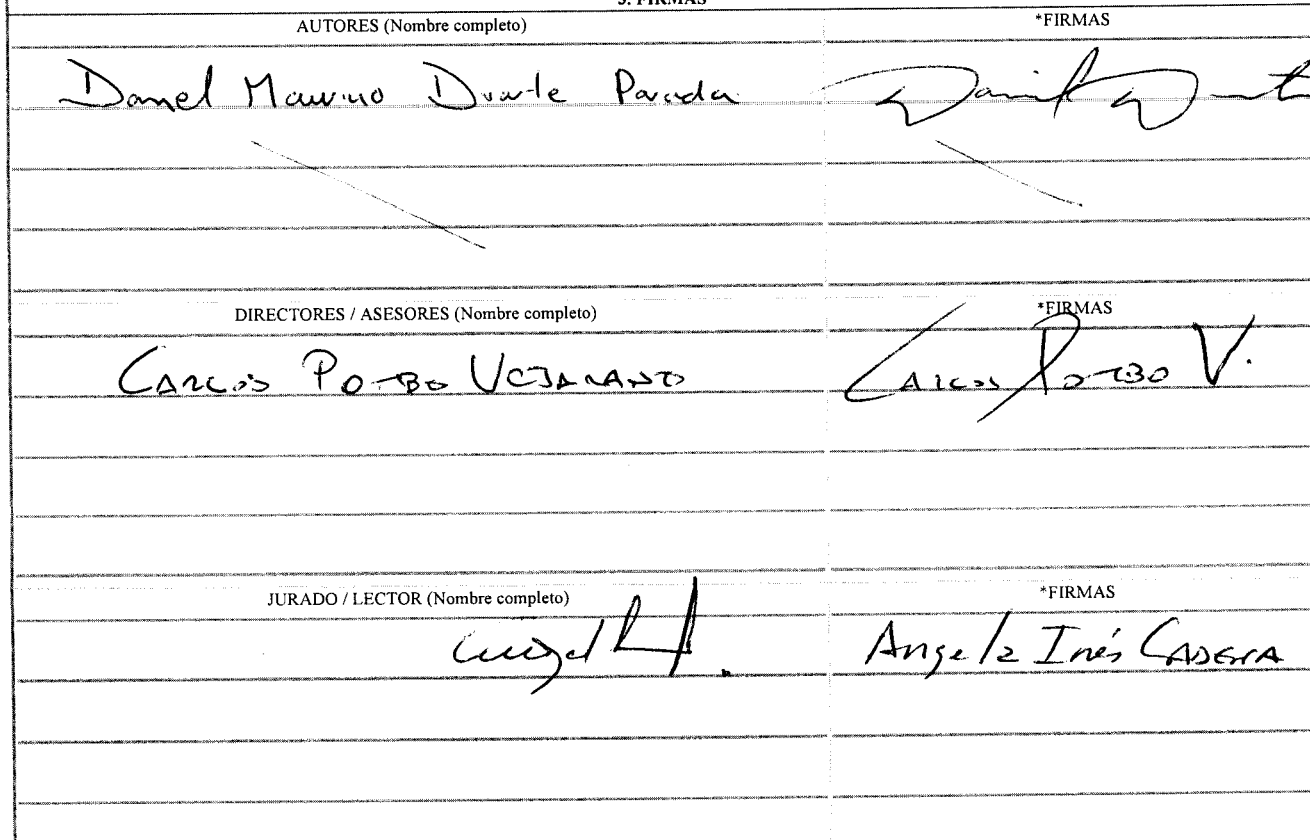 3. FIRMAS
AUTORES (Nombre completo) *FIRMAS
Daniel Mauricio Duarte Parada Daniel Duarte
DIRECTORES / ASESORES (Nombre completo) *FIRMAS
CARLOS POTBO VEJARANO CARLOS POTBO V.
JURADO / LECTOR (Nombre completo) *FIRMAS
Angela Inés CADENA